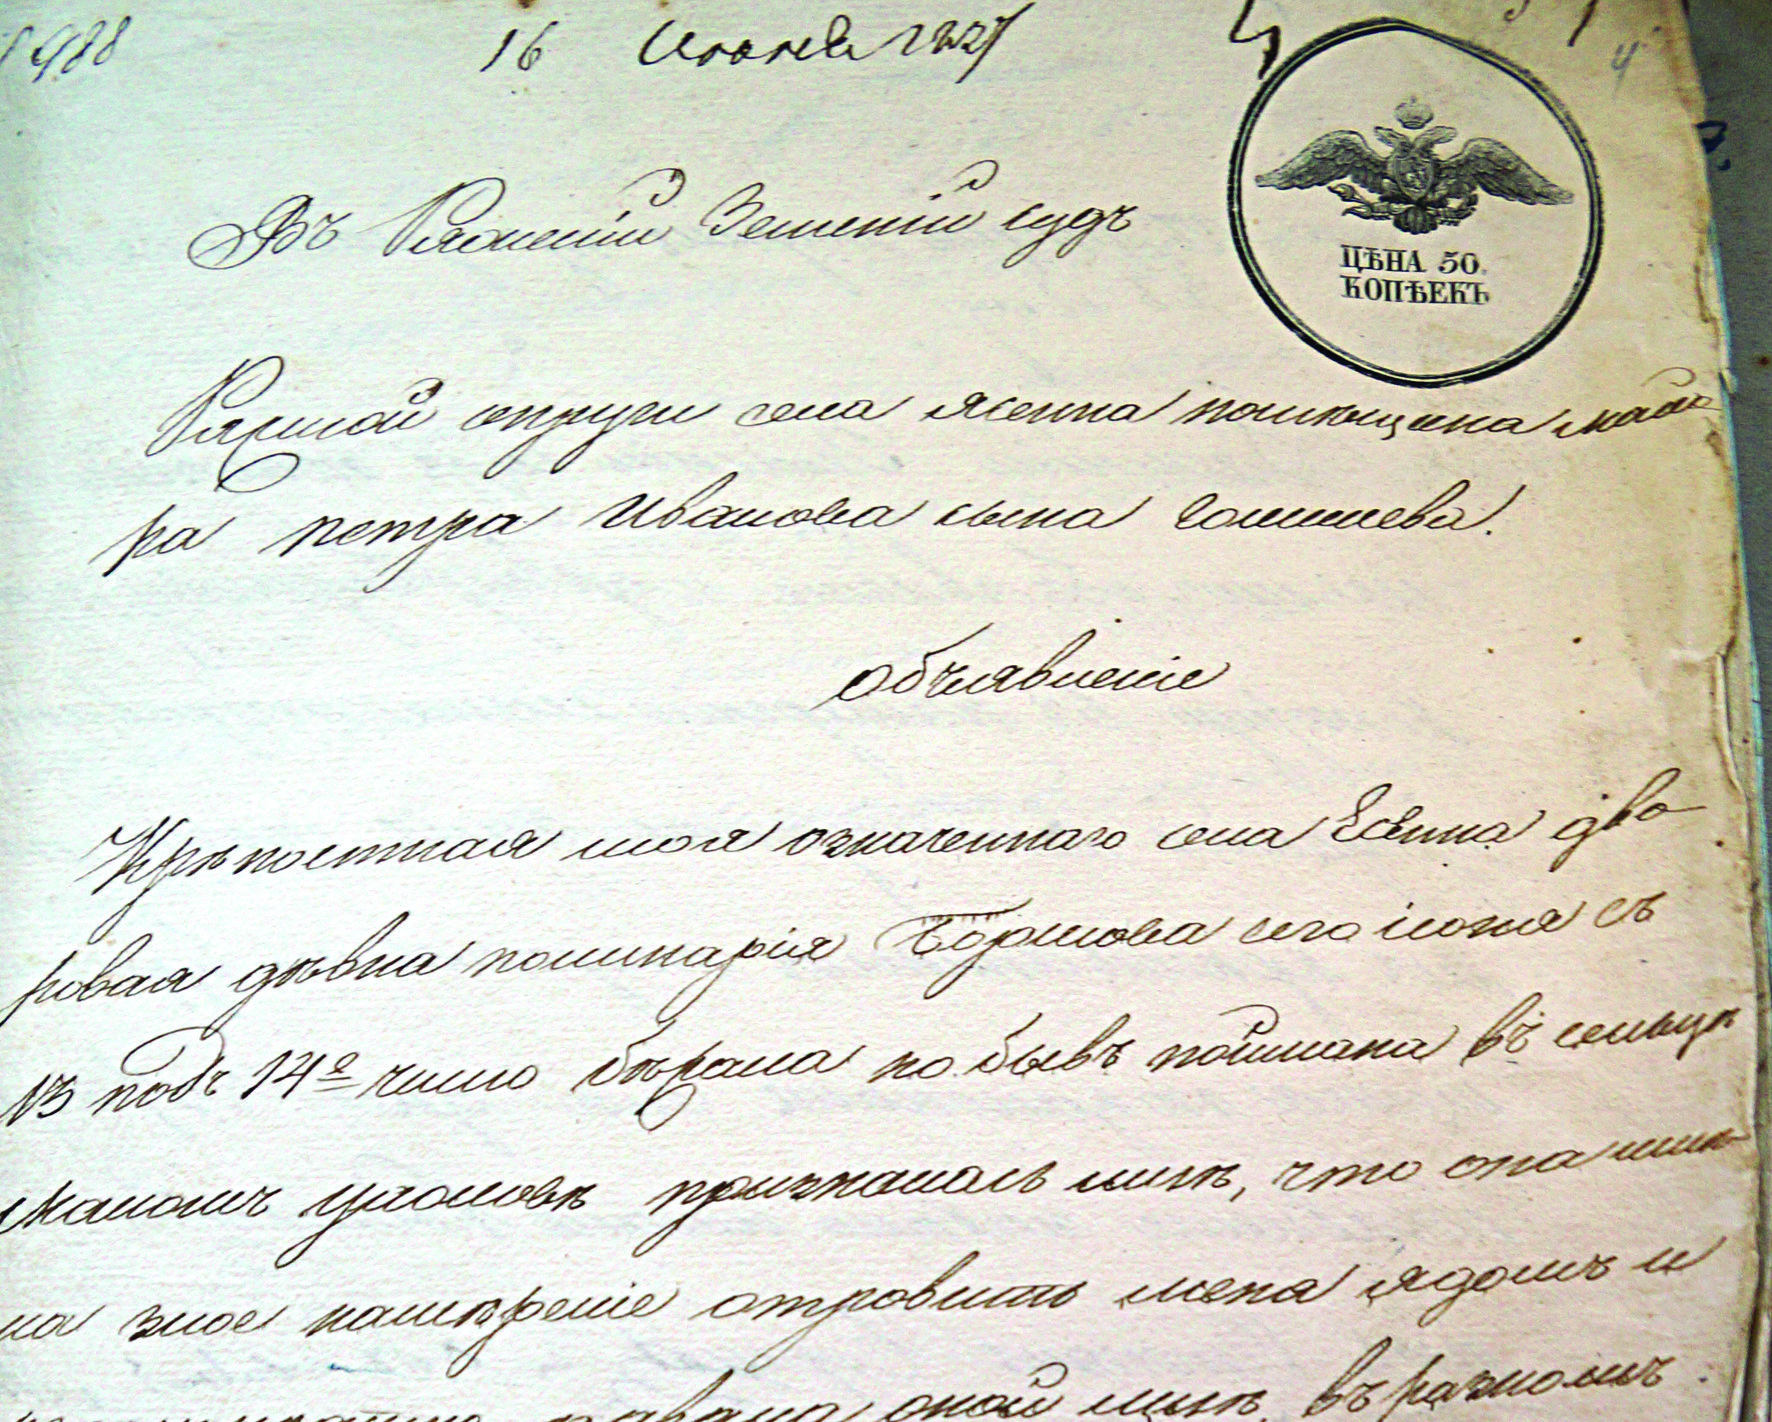 1988
16 Июня 1827
ЦѢНА 50.
КОПѢЕКЪ
Въ Ряжскій Земскій судъ
Ряжской округи села Ясенка помѣщика маiо
ра петра Иванова сына
объявленіе
Крѣпостная моя означенного села Есенка дво
ровая дѣвка поликарія сего іюня съ
13 подъ 14е число бѣжала но бывъ поймана въ сельцѣ
Маломъ призналась мнѣ, что она имѣ
ла злое намѣреніе отровить меня ядомъ и
оной мнѣ въ разномъ